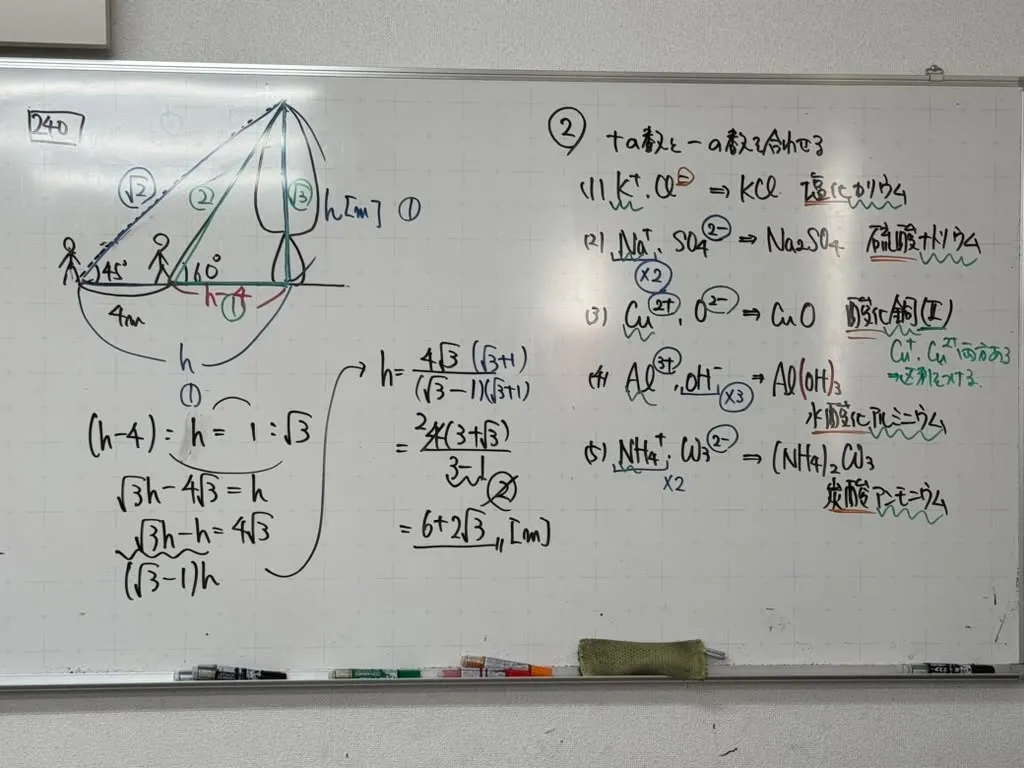 240
√2
2
√3
h[m] ①
45°
60°
h-4
①
4m
h
①
(h-4) : h = 1 : √3
√3h-4√3=h
√3h-h=4√3
(√3-1)h
h= 4√3 (√3+1) / (√3-1)(√3+1)
= 2 4(3+√3) / 3-1
②
= 6+2√3 [m]
② +の数と-の数を合わせる
(1) K⁺・Cl⁻ ⇒ KCl 塩化カリウム
(2) Na⁺・SO4²⁻ ⇒ Na2SO4 硫酸ナトリウム
×2
(3) Cu²⁺・O²⁻ ⇒ CuO 酸化銅(II)
Cu⁺、Cu²⁺両方ある
⇒区別をつける
(4) Al³⁺・OH⁻ ⇒ Al(OH)3
×3
水酸化アルミニウム
(5) NH4⁺・CO3²⁻ ⇒ (NH4)2CO3
×2
炭酸アンモニウム